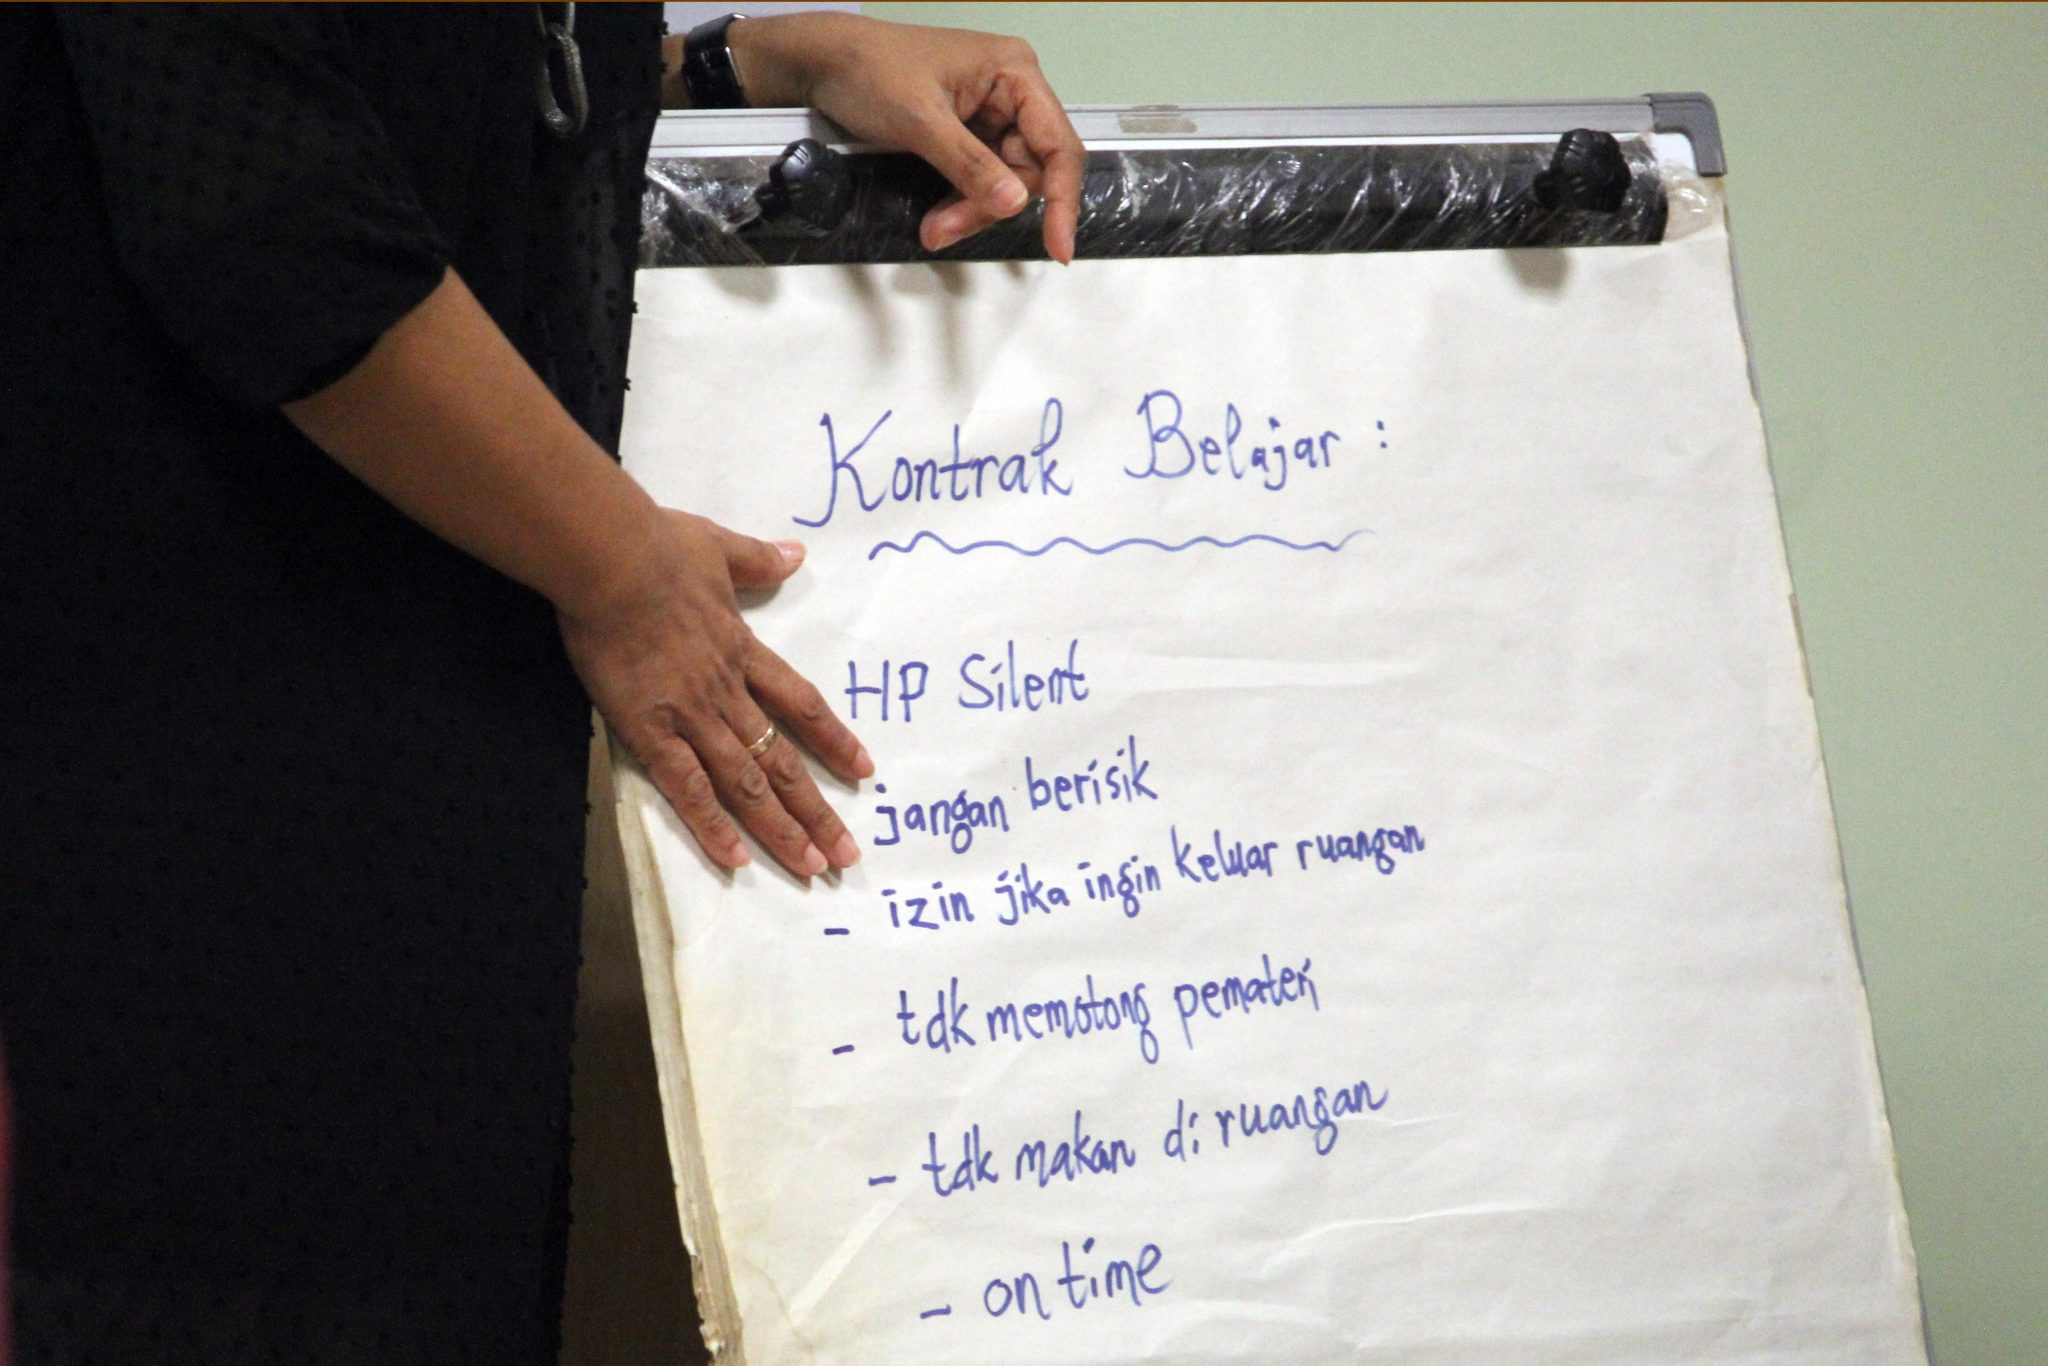 Kontrak Belajar :
HP Silent
jangan berisik
- izin jika ingin keluar ruangan
- tdk memotong pemateri
- tdk makan di ruangan
- on time